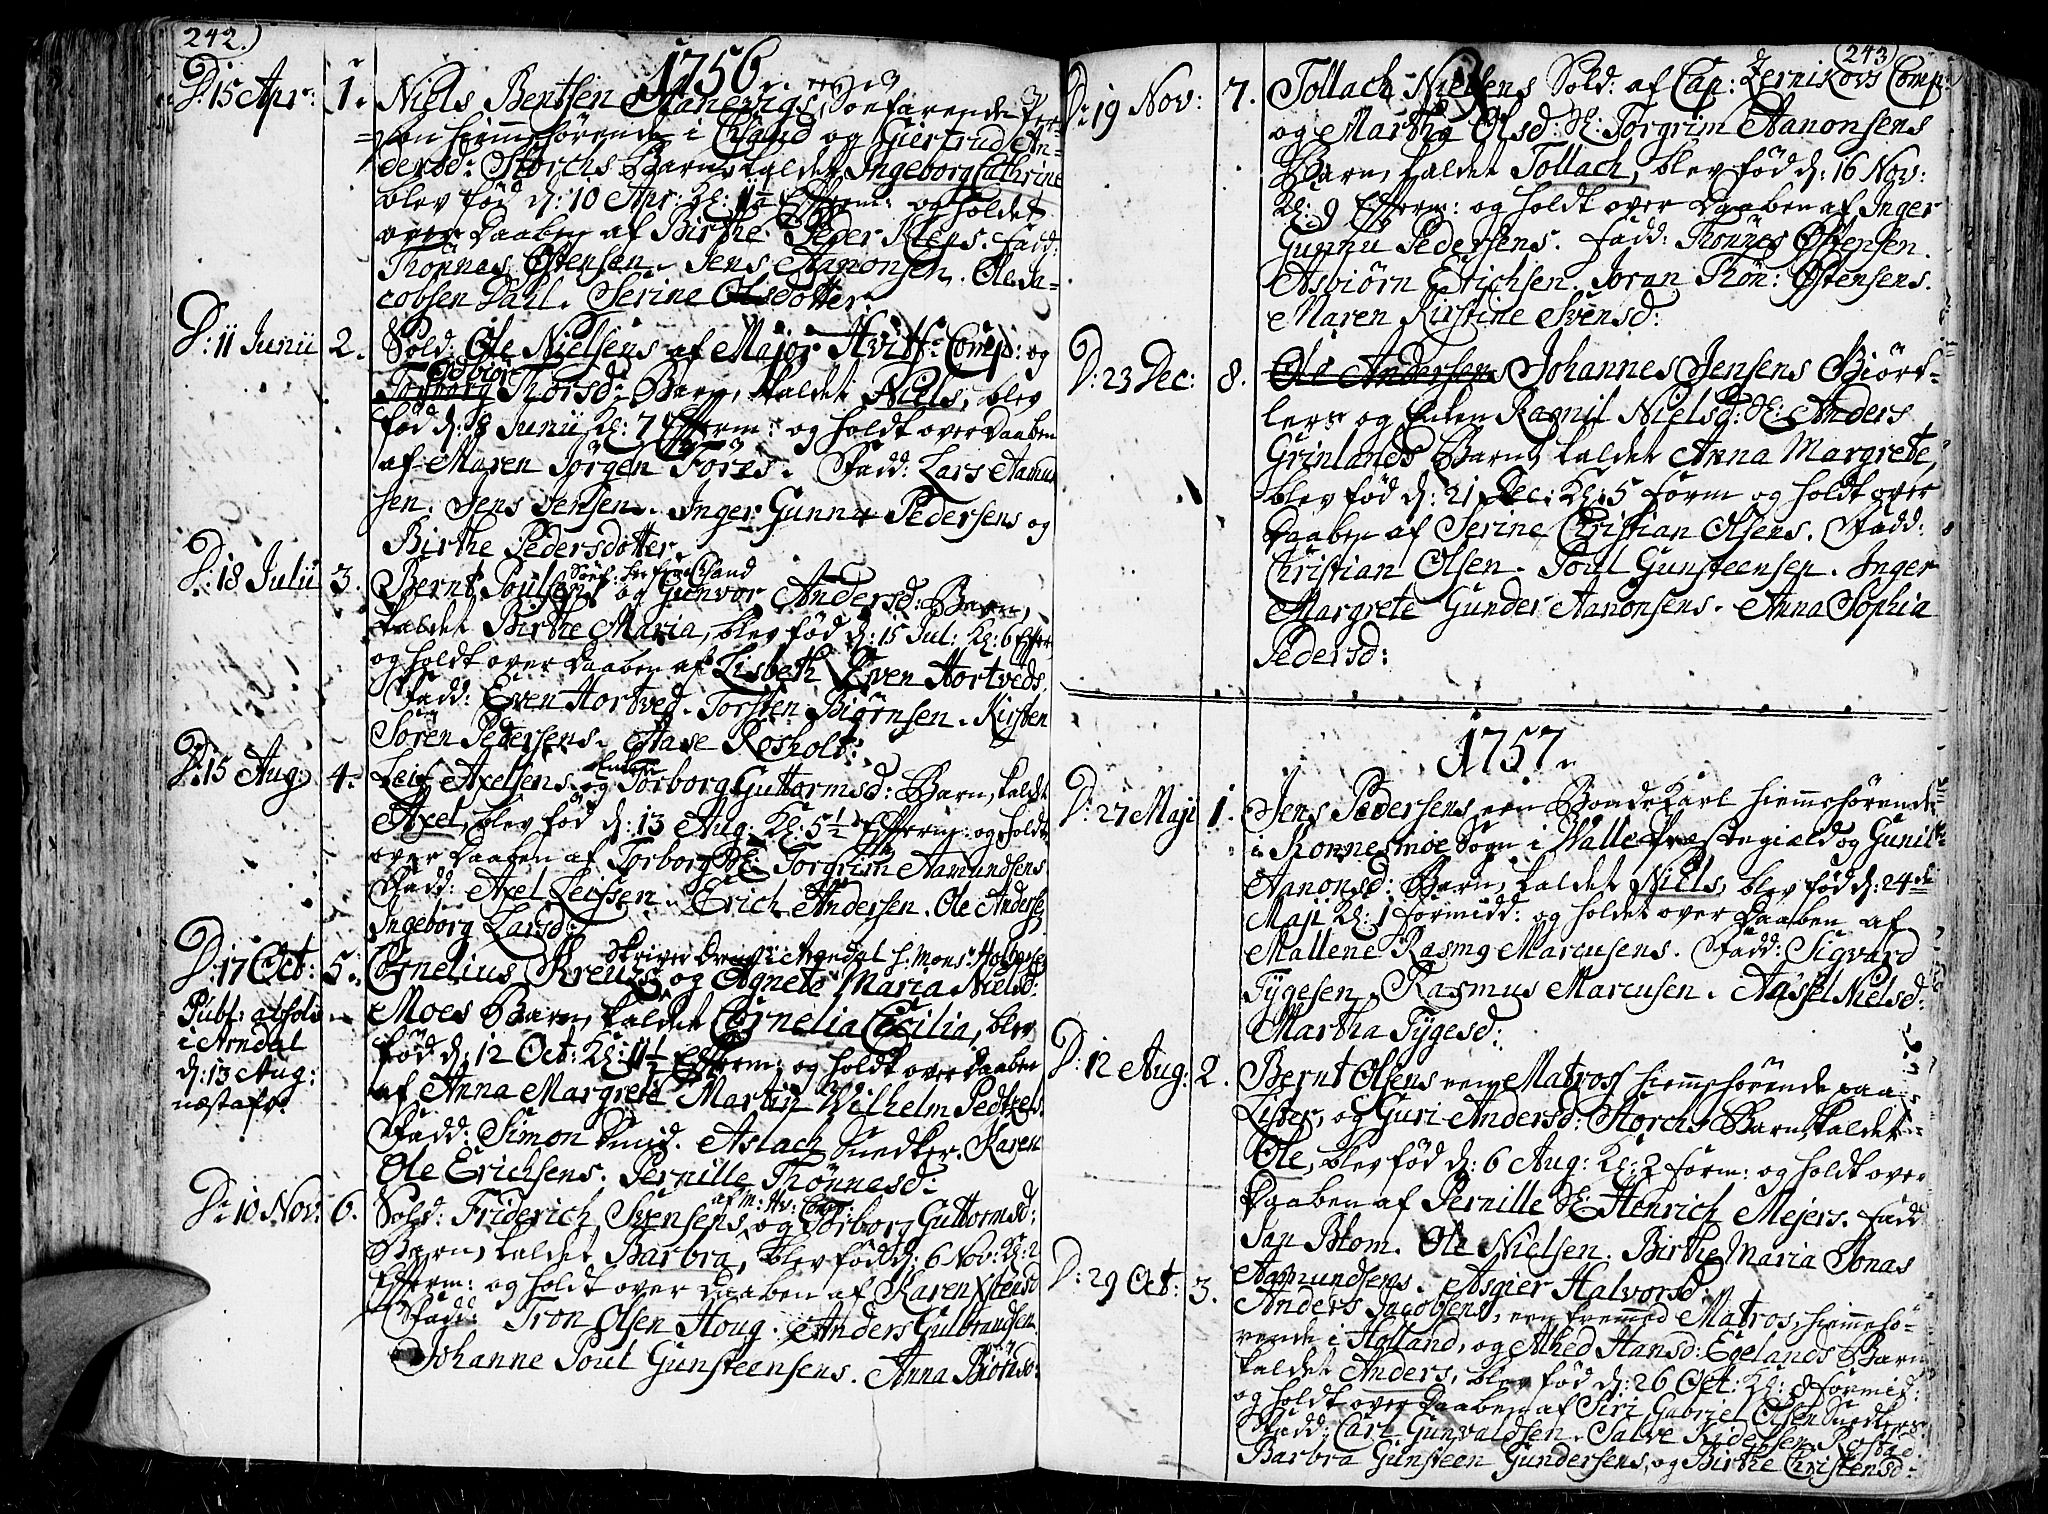 242.
1756.
D: 15 Apr: 1. Niels Bentsen Søefarende Per-
son hiemmehørende i Chsand og Giertrud An-
dersd: Storchs Barn, kaldet Ingeborg Cathrine
blev fød d: 10 Apr: Kl: Efterm: og holdet
over Daaben af Birthe Peder Klens. Fadd:
Thonnes Østensen. Jens Aanonsen. Ole Ja-
cobsen Dahl. Serine Olsdotter
D: 11 Junii 2. Sold: Ole Nielsens af Major Hvitf: Comp: og
Torborg Thorsd: Barn, kaldet Niels, blev
fød d: 8 Junii Kl: 7 Efterm: og holdt over Daaben
af Maren Jørgen Fores. Fadd: Lars Aamun
sen. Jens Jensen. Inger Gunnu Pedersens og
Birthe Pedersdotter
D: 18 Julii 3. Bernt Poulsens og Gunvor Andersd: Barn,
kaldet Birthe Maria, blev fød d: 15 Jul: Kl: 6 Efter
og holdt over Daaben af Lisbeth Even Hortveds.
Fadd: Even Hortved. Torsten Biørnsen. Kirsten
Søren Pedersens. Aase Rosholt:
D: 15 Aug: 4. Leif Axelsens og Enken Torborg Guttormsd: Barn, kaldt
Axel, blev fød d: 13 Aug: Kl: 5½ Efterm: og holdt
over Daaben af Torborg Sl: Torgrim Aamundsens
Fadd: Axel Leifsen. Erich Andersen. Ole Anderse
Ingeborg Larsd:
Skriver Dreng i Arendal h. Mons:
D: 17 Oct: 5. Cornelius Kreuzs og Agnete Maria Nielsd:
Publ: absolv
i Arndal
d: 13 Aug:
næstafv.
Moes Barn, kaldet Cornelia Cecilia, blev
fød d: 12 Oct: Kl: 11½ Efterm: og holdt over Daaben
af Anna Margrete Martin Wilhelm Pedtzels.
Fadd: Simon Smid. Aslach Snedker. Karen
Ole Erichsens. Pernille Thønnesd:
af M: Hv: Comp:
D: 10 Nov: 6. Sold: Friderich Svensens og Torborg Guttormsd:
Barn, kaldet Barbra, blev fød d: 6 Nov: Kl: 2
Efterm: og holdt over Daaben af Karen Xstensd
Fadd: Tron Olsen Houg. Anders Gulbrandsen
Johanne Poul Gunsteensens. Anna
243
D: 19 Nov: 7. Tollach Nielsens Sold: af Cap: Zernikovs Comp:
og Martha Olsd: Sl: Torgrim Aanonsens
Barn, kaldet Tollach, blev fød d: 16 Nov:
Kl: 9 Efterm: og holdt over Daaben af Inger
Gunnu Pedersens. Fadd: Thonnes Østensen.
Asbiørn Erichsen. Joran Thøn: Østensens.
Maren Kirstine Svensd:
D: 23 Dec: 8. Ole Andersens Johannes Jensens Biørt-
lers og Enken Ragnil Nielsd: Sl: Anders
Grinlands Barn, kaldet Anna Margrete,
blev fød d: 21 Dec: Kl: 5 Form og holdt over
Daaben af Serine Christian Olsens. Fadd:
Christian Olsen. Poul Gunsteensen. Inger
Margrete Gunder Aanonsens. Anna Sophia
Pedersd:
1757.
D: 27 Maji 1. Jens Pedersens, een Bonde Karl hiemmehørende
i Konnesmoe Sogn i Walle Præstegield og Gunil
Aanonsd: Barn, kaldet Niels, blev fød d: 24de
Maji Kl: 1 Formidd: og holdet over Daaben af
Mallene Rasmg Marcusens. Fadd: Sigvard
Tygesen. Rasmus Marcusen. Aassel Nielsd:
Martha Tygesd:
D: 12 Aug: 2. Bernt Olsens een Matross hiemmehørende paa
Lister, og Guri Andersd: Storchs Barn, kaldet
Ole, blev fød d: 6 Aug: Kl: 2 Form: og holdt over
Daaben af Pernille Sl: Henrich Mejers. Fadd
Jan Blom. Ole Nielsen. Birthe Maria Jonas
Aamundsens. Asgier Halvorsd:
D: 29 Oct: 3. Anders Jacobsens, een fremmed Matros, hiemmehø-
rende i Holland, og Alhed Hansd: Egelands Barn
kaldet Anders, blev fød d: 26 Oct: Kl: 8 Formid:
og holdt over Daaben af Siri Gabriel Olsen Snedkers.
Fadd: Carl Gunvaldsen. Salve
Barbra Gunsteen Gundersens, og Birthe Christensd: